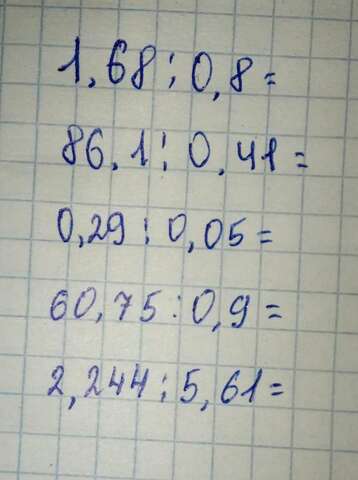 1,68:0,8=
86,1:0,41=
0,29:0,05=
60,75:0,9=
2,244:5,61=